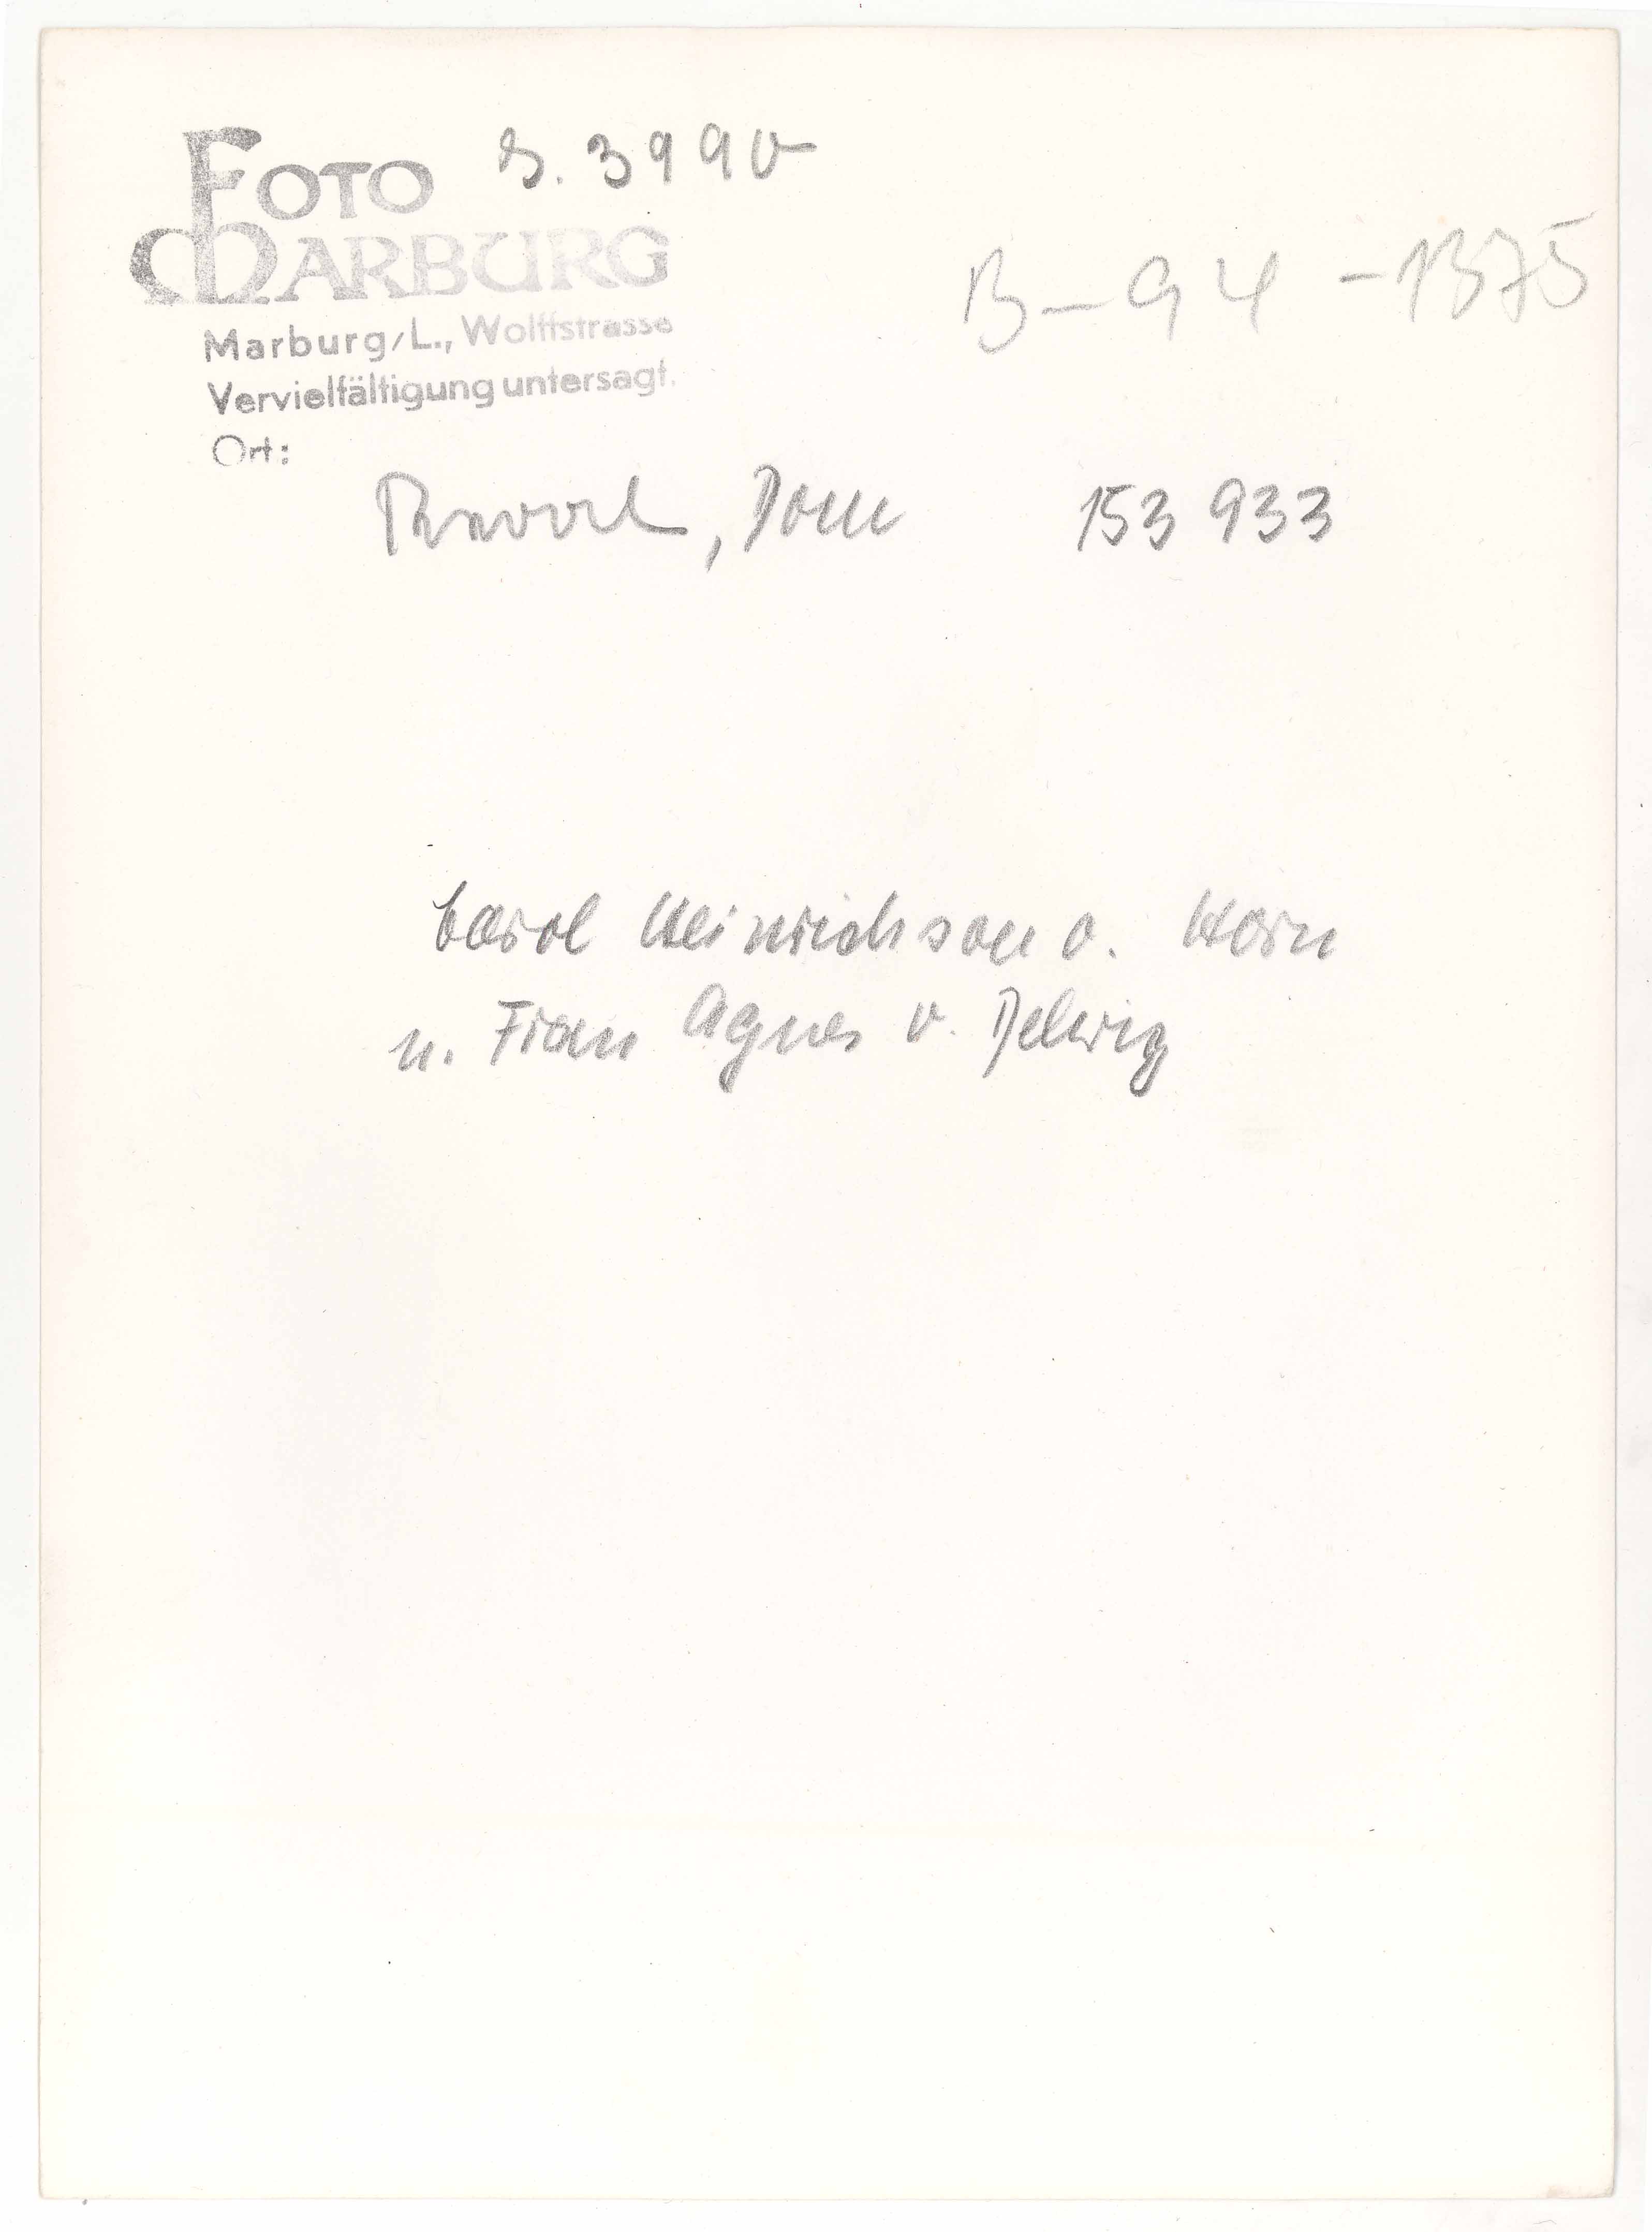 FOTO S. 3990
MARBURG
B-94-1375
Marburg/L., Wolffstrasse
Vervielfältigung untersagt.
Ort:
, Dom 153 933
Carol Heinrichson v. Horn
u. Frau Agnes v. Delwig